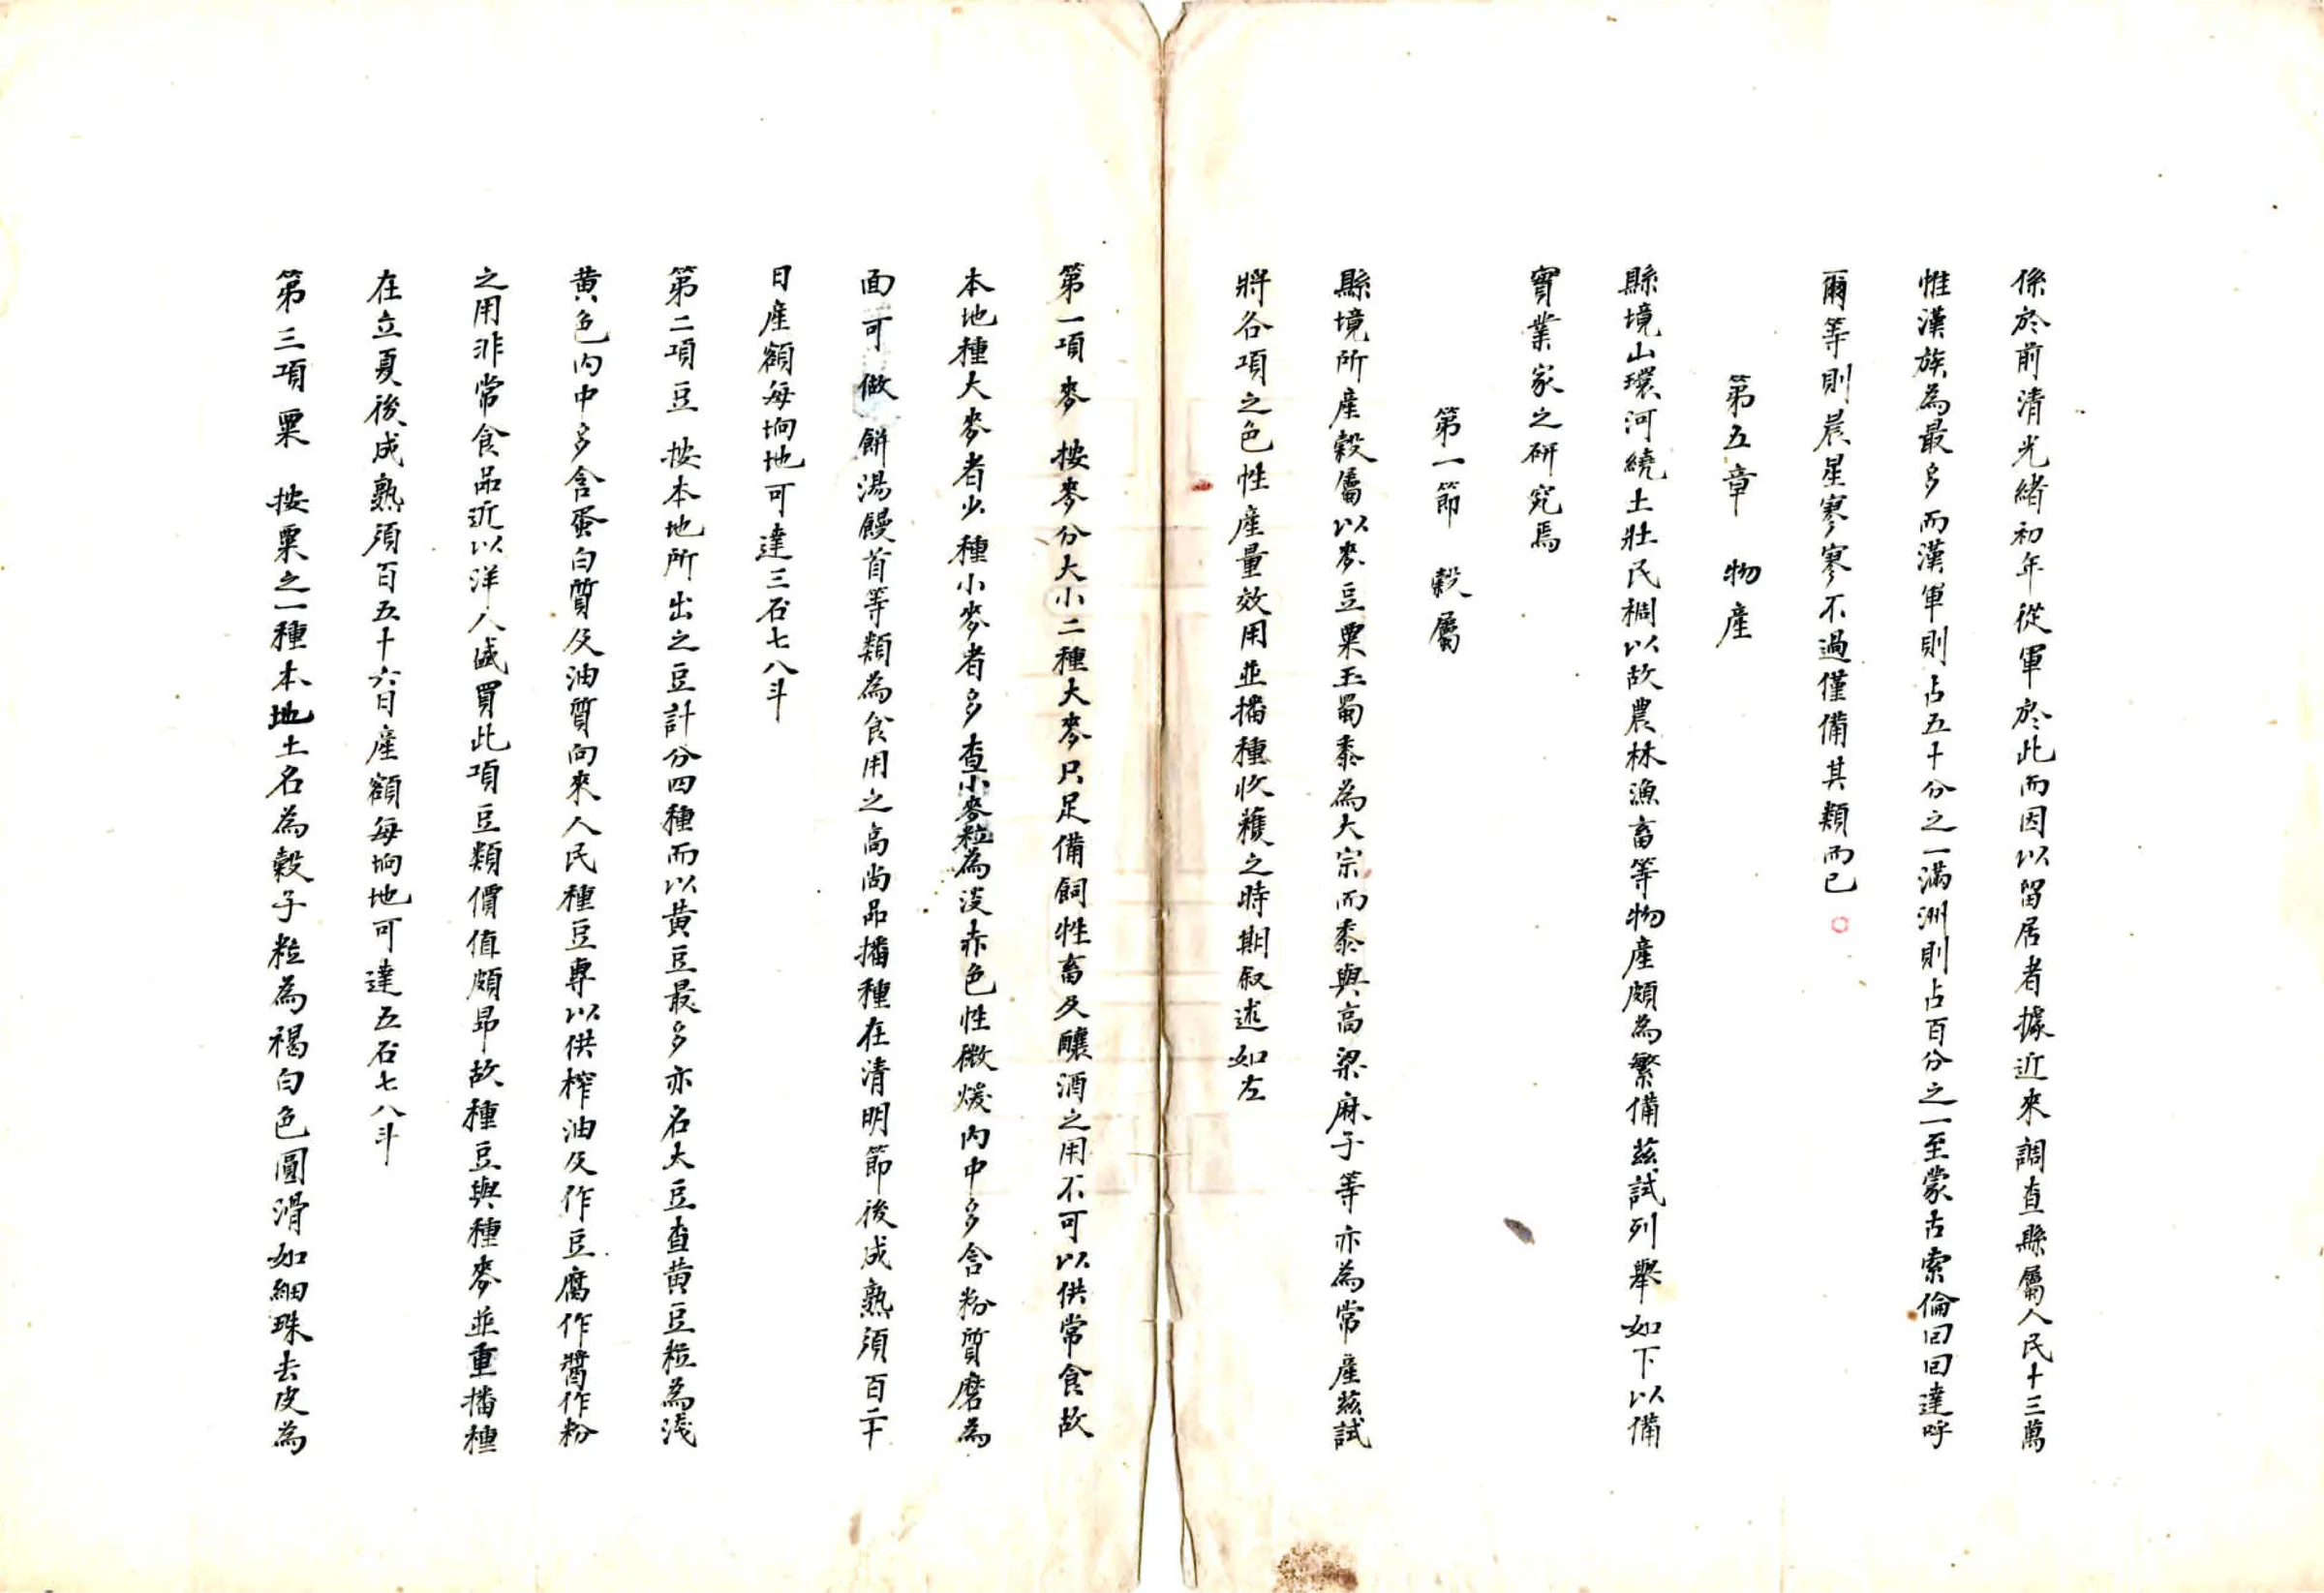 係於前清光緒初年從軍於此而因以留居者據近來調查縣屬人民十三萬
惟漢族為最多而漢軍則占五十分之一滿洲則占百分之一至蒙古索倫回回達呼
爾等則晨星寥寥不過僅備其類而已
第五章　物產
縣境山環河繞土壯民稠以故農林漁畜等物產頗為繁備茲試列舉如下以備
實業家之研究焉
第一節　穀屬
縣境所產穀屬以麥豆粟玉蜀黍為大宗而黍與高粱麻子等亦為常產茲試
將各項之色性產量效用並播種收穫之時期叙述如左
第一項麥　按麥分大小二種大麥只足備飼牲畜及釀酒之用不可以供常食故
本地種大麥者少種小麥者多查小麥粒為淡赤色性微煖內中多含粉質磨為
面可做餅湯饅首等類為食用之高尚品播種在清明節後成熟須百二十
日產額每垧地可達三石七八斗
第二項豆　按本地所出之豆計分四種而以黃豆最多亦名大豆查黃豆粒為淺
黃色內中多含蛋白質及油質向來人民種豆專以供榨油及作豆腐作醬作粉
之用非常食品近以洋人盛買此項豆類價值頗昂故種豆與種麥並重播種
在立夏後成熟須百五十六日產額每垧地可達五石七八斗
第三項粟　按粟之一種本地土名為穀子粒為褐白色圓滑如細珠去皮為